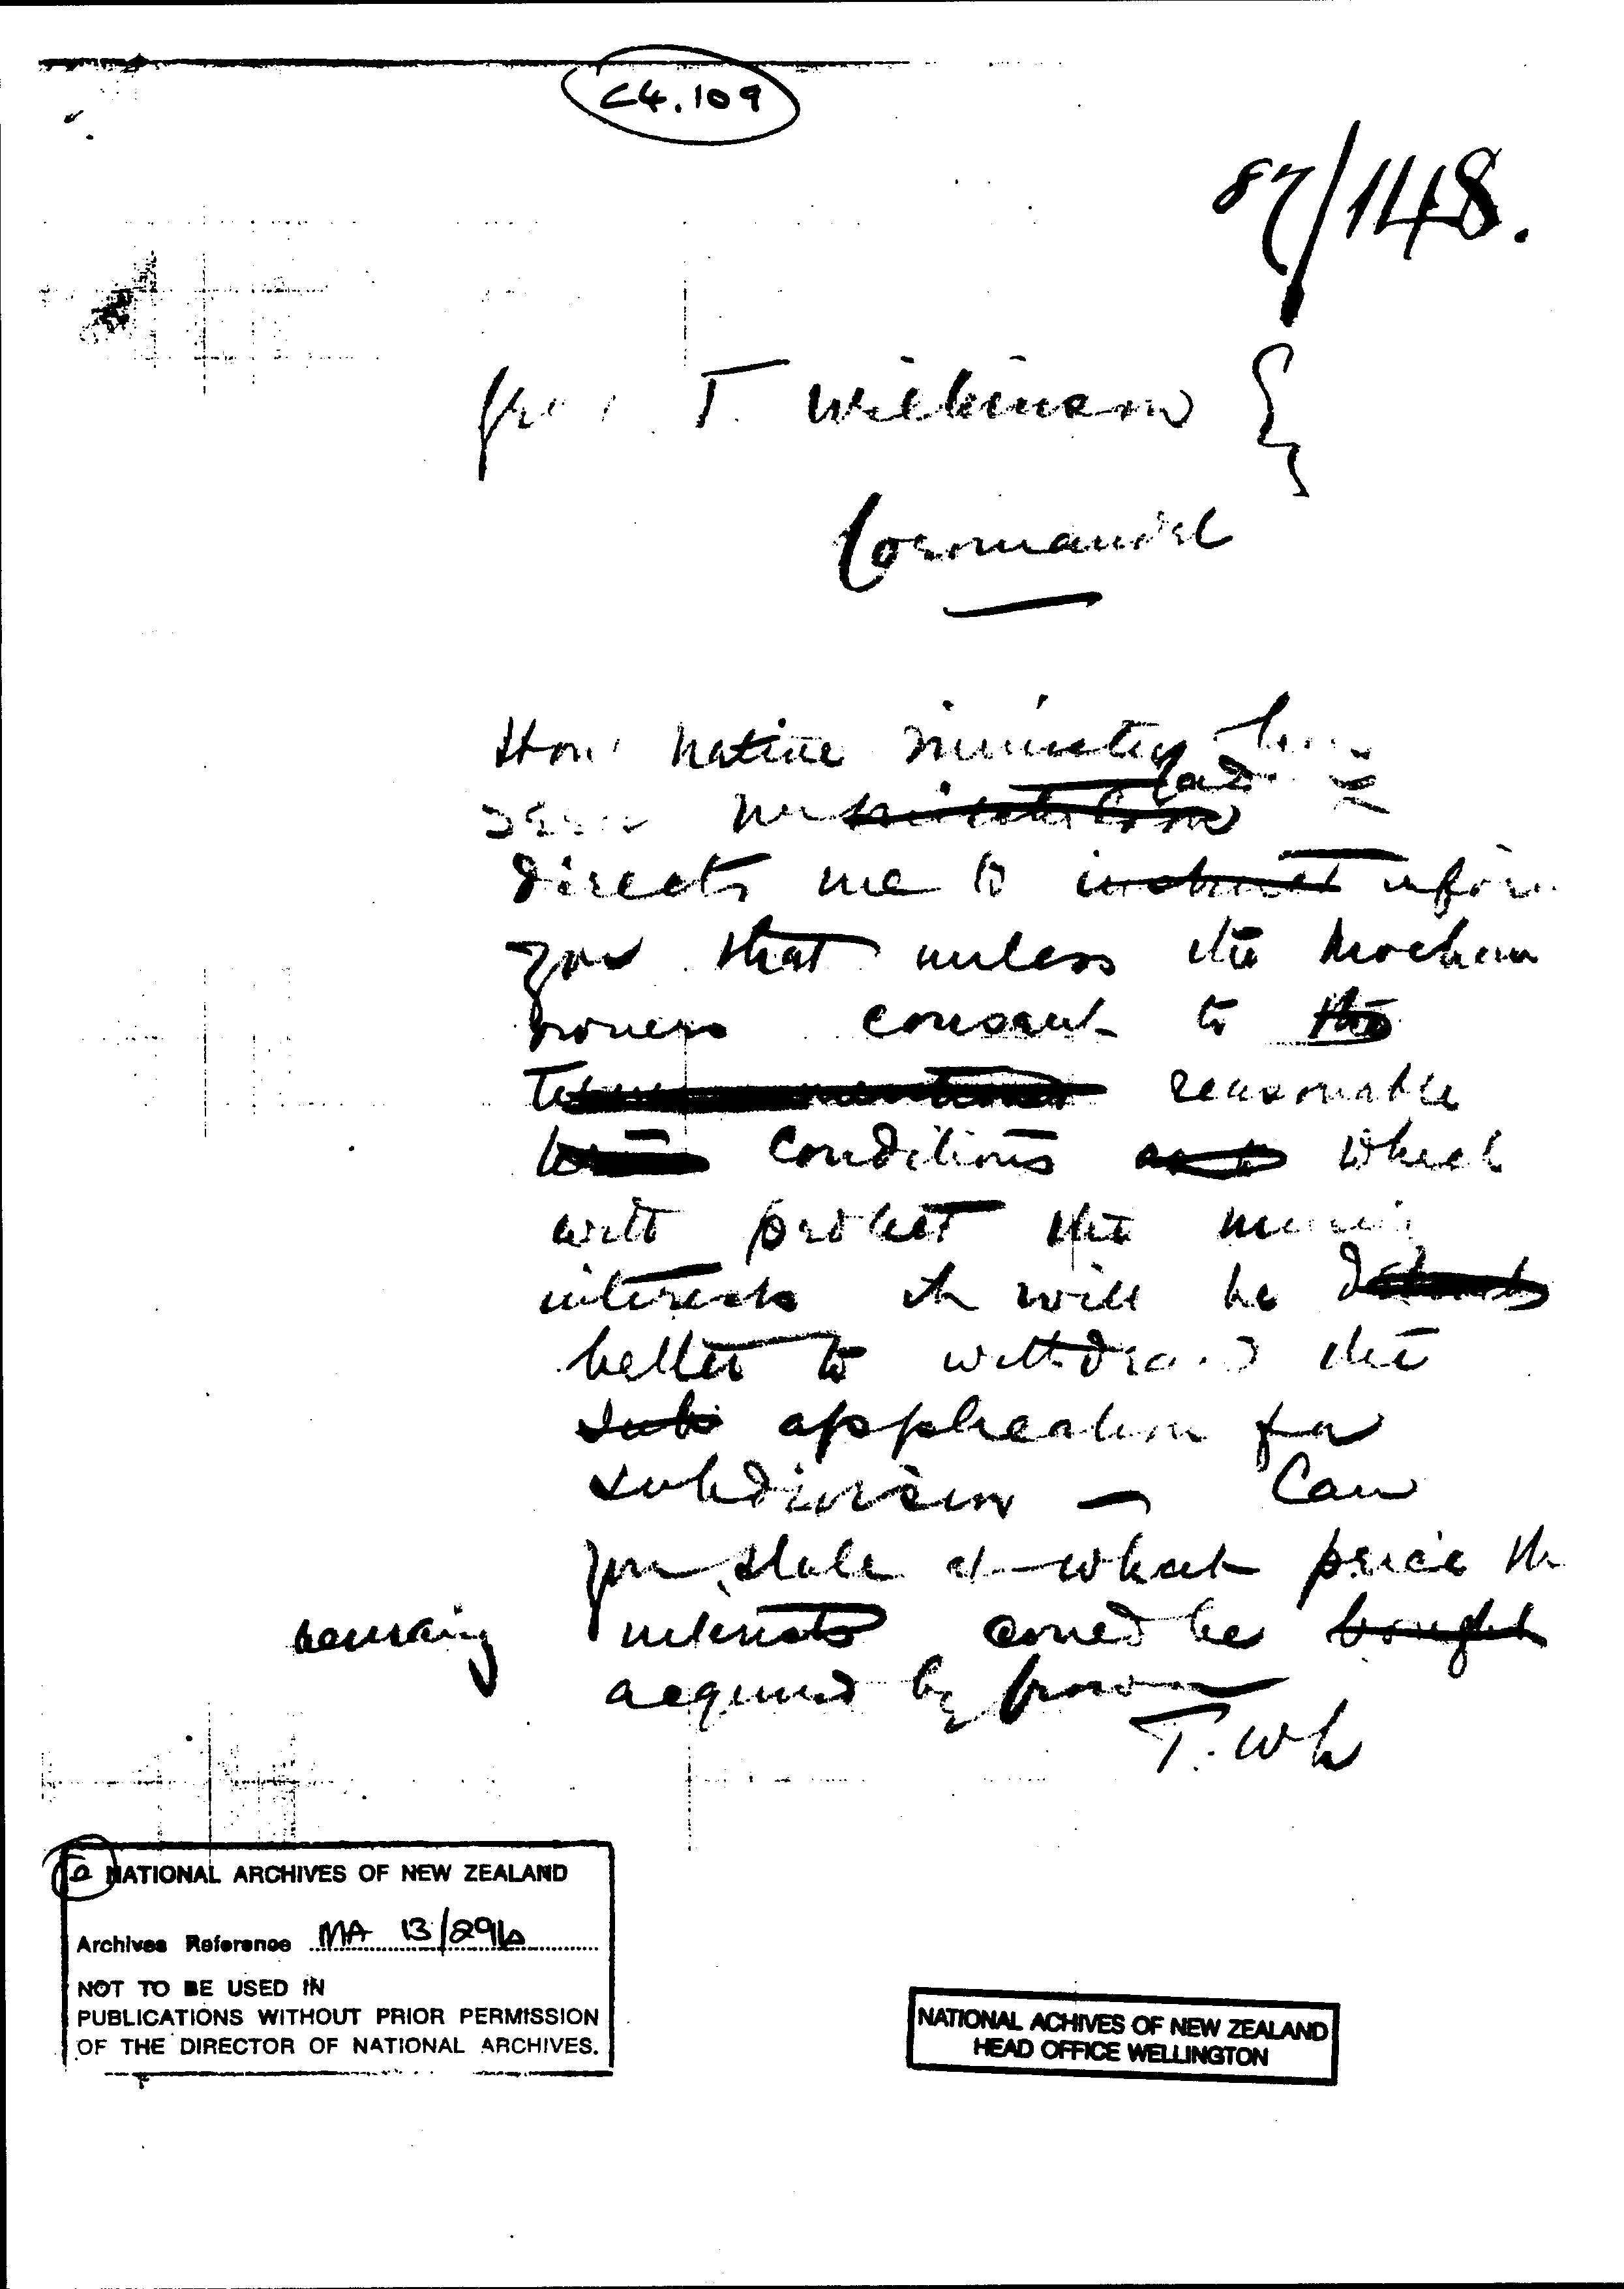 C4.109
87/148.
T. Wilkinson
Coromandel
Hon Native Minister
directs me to instruct inform
you that unless the
owners consent to the
reasonable
conditions which
will protect the mining
interests it will be
better to withdraw the
sub application for
subdivision — Can
you state at what price the
remaing interests could be bought
acquired by Crown
T. Wh
NATIONAL ARCHIVES OF NEW ZEALAND
Archives Reference MA 13/29b
NOT TO BE USED IN
PUBLICATIONS WITHOUT PRIOR PERMISSION
OF THE DIRECTOR OF NATIONAL ARCHIVES.
NATIONAL ACHIVES OF NEW ZEALAND
HEAD OFFICE WELLINGTON